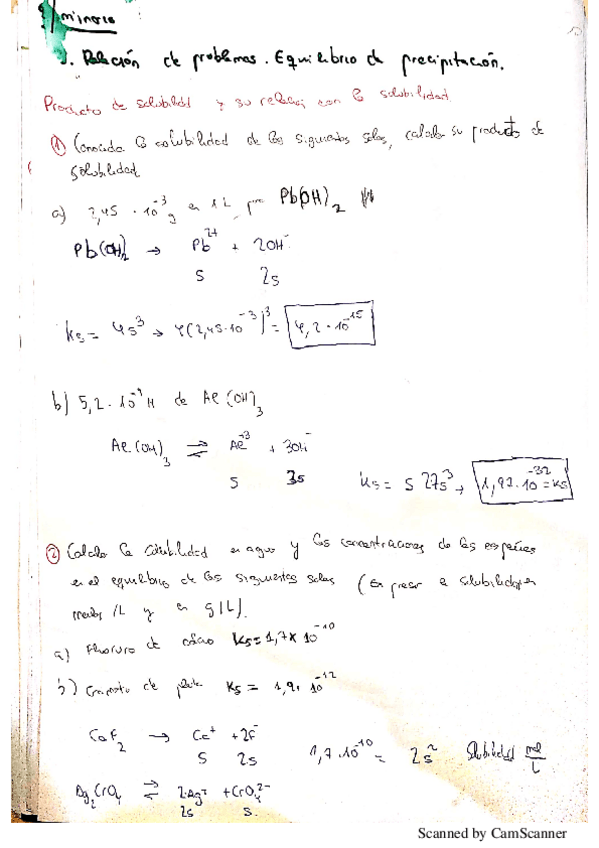 Seminario
1. Relación de problemas. Equilibrio de precipitación.
Producto de solubilidad y su relación con la solubilidad
① Conocida la solubilidad de las siguientes sales, calcula su producto de
solubilidad
a) 2,45 · 10⁻³ g en 1L para Pb(OH)₂
Pb(OH)₂ → Pb²⁺ + 2OH⁻
S 2s
Ks = 4s³ → 4(2,45·10⁻³)³ = 4,2 · 10⁻¹⁵
b) 5,2 · 10⁻⁹ M de Al(OH)₃
Al(OH)₃ ⇌ Al⁻³ + 3OH⁻
S 3s
Ks = S 27s³ → 1,97·10⁻³² = Ks
② Calcula la solubilidad en agua y las concentraciones de las especies
en el equilibrio de las siguientes sales (Expresar la solubilidad en
moles/L y en g/L).
a) Fluoruro de calcio Ks = 1,7 × 10⁻¹⁰
b) Cromato de plata Ks = 1,9 · 10⁻¹²
CaF₂ → Ca⁺ + 2F⁻
S 2s
1,7 · 10⁻¹⁰ = 2s² Solubilidad mol/L
Ag₂CrO₄ ⇌ 2Ag⁺ + CrO₄²⁻
2s s.
Scanned by CamScanner